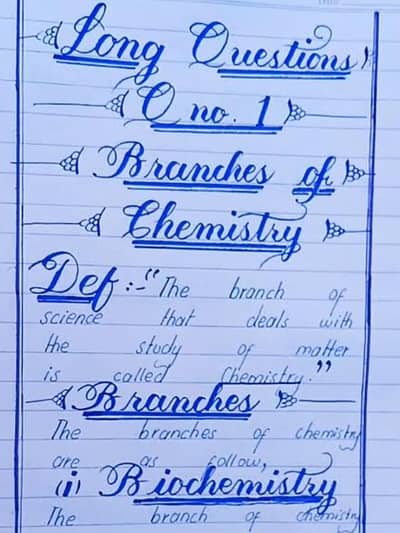 Long Questions
Q no. 1
Branches of
Chemistry
Def :- "The branch of
science that deals with
the study of matter
is called Chemistry."
Branches
The branches of chemistry
are as follow,
(i) Biochemistry
The branch of chemistry